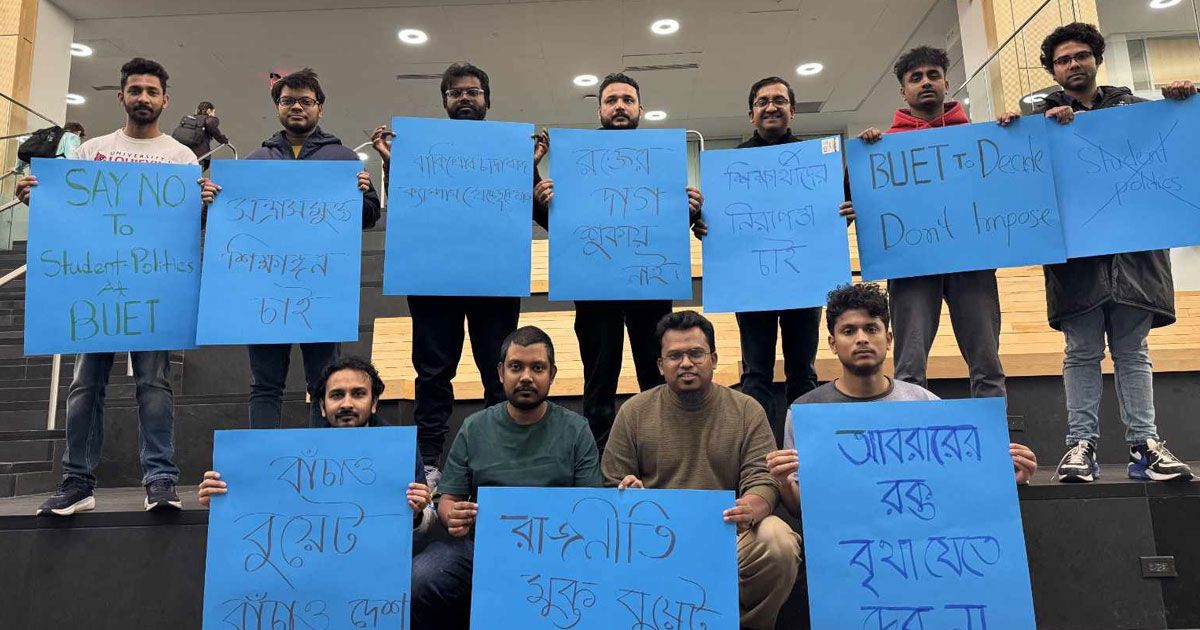 UNIVERSITY OF
LOUISVILLE
SAY NO
To
Student-Politics
At
BUET
সন্ত্রাসমুক্ত
শিক্ষাঙ্গন
চাই
রক্তের
দাগ
শুকায়
নাই।
শিক্ষার্থীদের
নিরাপত্তা
চাই
BUET To Decide
Don't Impose
Student
politics
বাঁচাও
বুয়েট
বাঁচাও দেশ
রাজনীতি
মুক্ত বুয়েট
আবরারের
রক্ত
বৃথা যেতে
দেব না